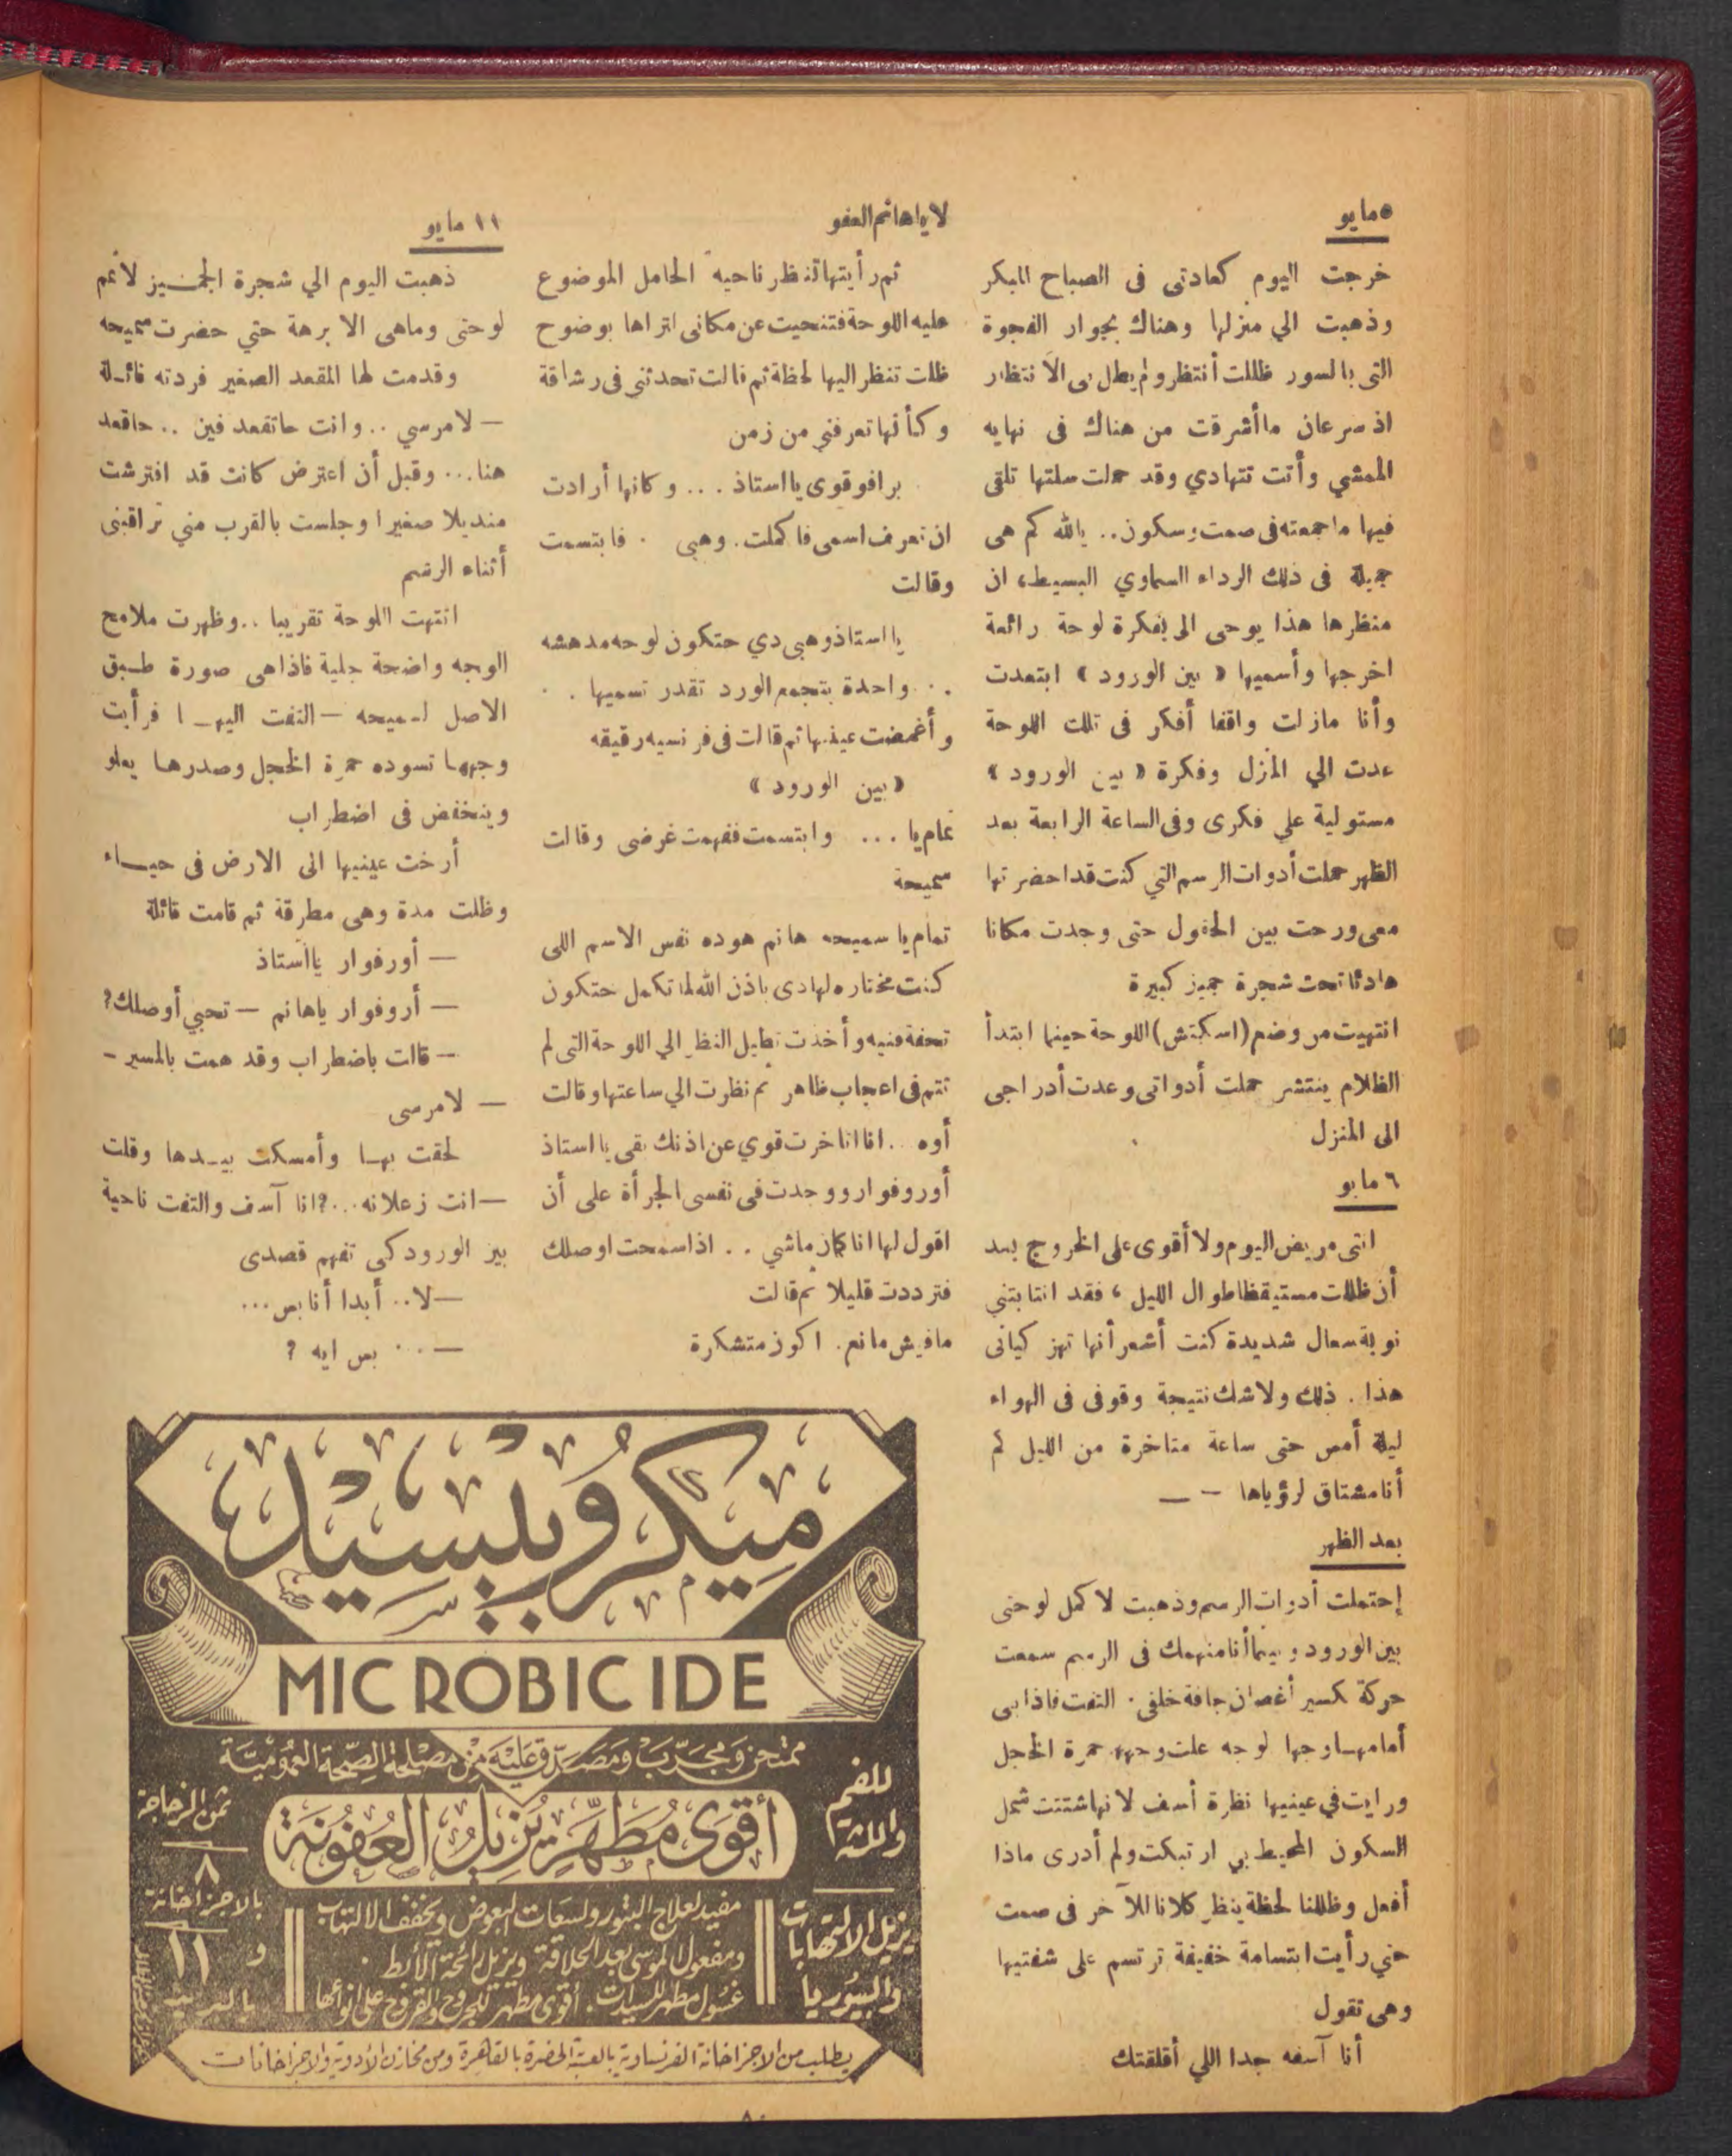 ٥ مايو
خرجت اليوم كعادتى فى الصباح المبكر
وذهبت الي منزلها وهناك بجوار الفجوة
التى بالسور ظللت أنتظر ولم يطل بى الانتظار
اذ سرعان ما أشرقت من هناك فى نهايه
الممشي وأتت تتهادي وقد حملت سلتها تلقى
فيها ماجمعته فى صمت وسكون.. يالله كم هى
جميلة فى ذلك الرداء السماوي البسيط، ان
منظرها هذا يوحى الى بفكرة لوحة رائعة
اخرجها وأسميها « بين الورود » ابتعدت
وأنا مازلت واقفا أفكر فى تلك اللوحة
عدت الي المنزل وفكرة « بين الورود »
مستولية علي فكرى وفى الساعة الرابعة بعد
الظهر حملت أدوات الرسم التي كنت قد احضرتها
معى ورحت بين الحقول حتى وجدت مكانا
هادئا تحت شجرة جميز كبيرة
انتهيت من وضع (اسكتش) اللوحة حينما ابتدأ
الظلام ينتشر حملت أدواتى وعدت أدراجى
الى المنزل
٦ مايو
انتى مريض اليوم ولا أقوى على الخروج بعد
أن ظللت مستيقظا طوال الليل ، فقد انتابتني
نوبة سعال شديدة كنت أشعر أنها تهز كيانى
هذا . ذلك ولاشك نتيجة وقوفى فى الهواء
ليلة أمس حتى ساعة متاخرة من الليل كم
أنا مشتاق لرؤياها – —
بعد الظهر
إحتملت أدوات الرسم وذهبت لا كمل لوحتى
بين الورود وبينما أنا منهمك فى الرسم سمعت
حركة كسير أغصان جافة خلفى . التفت فاذا بى
أمامها وجها لوجه علت وجهها حمرة الخجل
ورايت في عينيها نظرة أسف لانها شتتت شمل
السكون المحيط بي ارتبكت ولم أدرى ماذا
أفعل وظللنا لحظة ينظر كلانا للآخر فى صمت
حتي رأيت ابتسامة خفيفة ترتسم على شفتيها
وهى تقول
أنا آسفه جدا اللي أقلقتك
لا ياهانم العفو
ثم رأيتها تنظر ناحية الحامل الموضوع
عليه اللوحة فتنحيت عن مكانى لتراها بوضوح
ظلت تنظر اليها لحظة ثم قالت تحدثنى فى رشاقة
وكأنها تعرفني من زمن
برافو قوى يا استاذ . . . وكانها أرادت
ان تعرف اسمى فاكملت . وهبى . فابتسمت
وقالت
يا استاذ وهبى دي حتكون لوحه مدهشه
. . واحدة بتجمع الورد تقدر تسميها . .
وأغمضت عينيها ثم قالت فى فرنسيه رقيقه
« بين الورود »
تمام يا ... وابتسمت ففهمت غرضى وقالت
سميحة
تمام يا سميحه هانم هوده نفس الاسم اللى
كنت مختاره لهادى باذن الله لما تكمل حتكون
تحفة فنيه وأخذت تطيل النظر الي اللوحة التى لم
تتم فى اعجاب ظاهر ثم نظرت الي ساعتها وقالت
أوه ... انا اتاخرت قوي عن اذنك بقى يا استاذ
أوروفوار ووجدت فى نفسى الجرأة على أن
اقول لها انا كمان ماشي . . اذا سمحت اوصلك
فترددت قليلا ثم قالت
مافيش مانع . اكون متشكرة
١١ مايو
ذهبت اليوم الي شجرة الجميز لأتمم
لوحتى وماهى الا برهة حتي حضرت سميحه
وقدمت لها المقعد الصغير فردته قائلة
— لامرسي .. وانت حاتقعد فين .. حاقعد
هنا... وقبل أن اعترض كانت قد افترشت
منديلا صغيرا وجلست بالقرب مني تراقبنى
أثناء الرسم
انتهت اللوحة تقريبا .. وظهرت ملامح
الوجه واضحة جلية فاذاهى صورة طبق
الاصل لسميحه — التفت اليها فرأيت
وجهها تسوده حمرة الخجل وصدرها يعلو
وينخفض فى اضطراب
أرخت عينيها الى الارض فى حياء
وظلت مدة وهى مطرقة ثم قامت قائلة
— أورفوار يا استاذ
— أروفوار ياهانم — تحبي أوصلك؟
— قالت باضطراب وقد همت بالمسير –
— لامرسى
لحقت بها وأمسكت بيدها وقلت
— انت زعلانه...؟ انا آسف والتفت ناحية
بين الورود كى تفهم قصدى
— لا.. أبدا أنا بس ...
— . . . بس ايه ؟
ميكروبيسيل
MICROBICIDE
ممتحن ومجرّب ومصدّق عليه من مصلحة الصحة العمومية
للفم
واللثة
أقوى مطهّر يزيل العفونة
ثمن الزجاجة
٨
بالاجزاخانة
و ١١
بالبريد
يزيل الالتهابات
والبيوريا
مفيد لعلاج البثور ولسعات البعوض ويخفف الالتهاب
ومفعول الموسى بعد الحلاقة ويزيل رائحة الأبط .
غسول مطهر للسيدات . أقوى مطهر للجروح والقروح على أنواعها
يطلب من الاجزاخانة الفرنساوية بالعتبة الخضرة بالقاهرة ومن مخازن الأدوية والاجزاخانات
٨٠